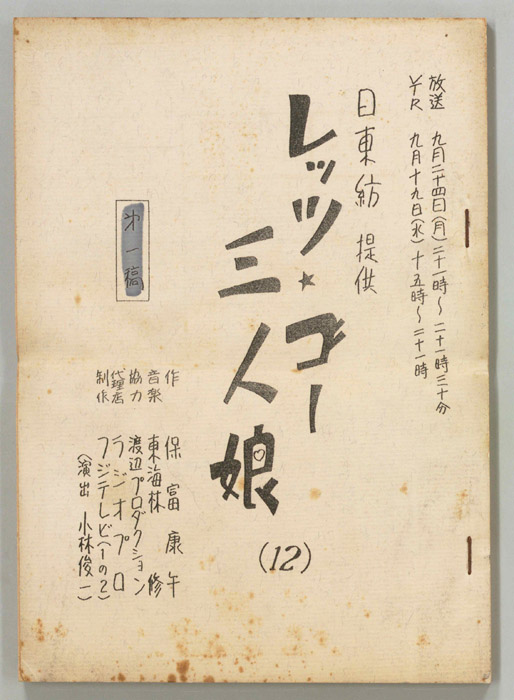 放送 九月二十四日(月)二十一時〜二十一時三十分
VTR 九月十九日(水)十五時〜二十一時
日東紡 提供
レッツ★ゴー
三人娘
(12)
第一稿
作 保富康午
音楽 東海林修
協力 渡辺プロダクション
代理店 ラジオプロ
制作 フジテレビ(1の2)
(演出 小林俊一)